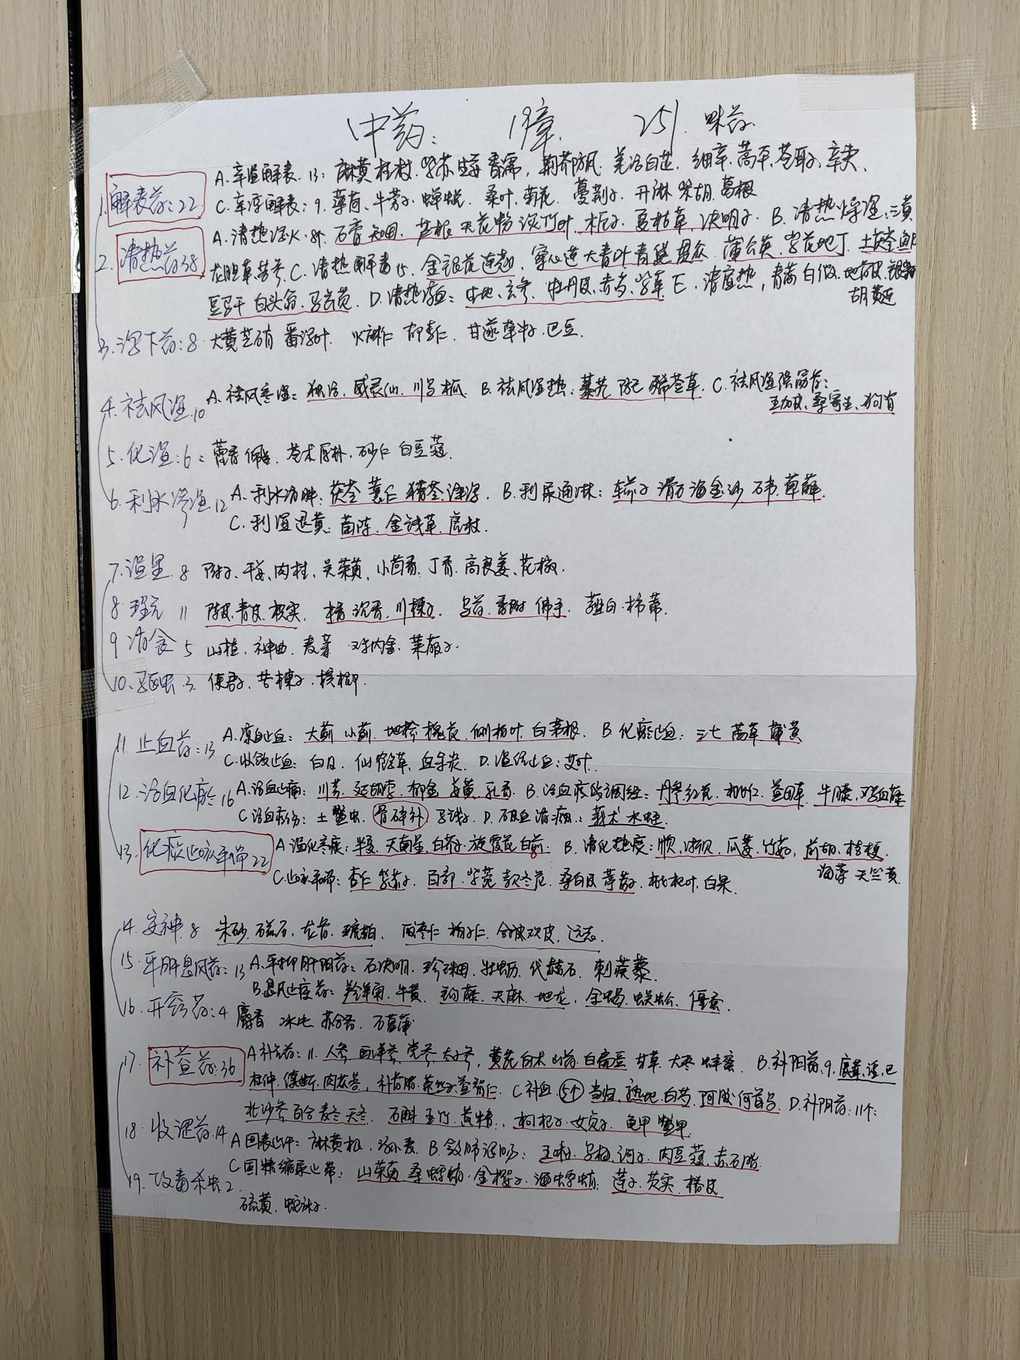 中药: 19章. 251. 味药.
1. 解表药: 22 A. 辛温解表. 13: 麻黄 桂枝. 紫苏 生姜 香薷, 荆芥 防风 羌活 白芷. 细辛. 藁本. 苍耳子, 辛夷.
C. 辛凉解表: 9. 薄荷. 牛蒡子. 蝉蜕. 桑叶. 菊花. 蔓荆子. 升麻 柴胡. 葛根
2. 清热药 38 A. 清热泻火. 8个. 石膏 知母. 芦根 天花粉 淡竹叶. 栀子. 夏枯草, 决明子. B. 清热燥湿. 三黄
龙胆草 苦参 C. 清热解毒 15. 金银花 连翘. 穿心莲 大青叶 青黛 贯众 蒲公英. 紫花地丁. 土茯苓 鱼
白头翁. D. 清热凉血: 生地、玄参. 牡丹皮, 赤芍, 紫草 E. 清虚热, 青蒿 白薇. 地骨皮. 银柴
胡 黄连
3. 泻下药: 8 大黄 芒硝 番泻叶 火麻仁 郁李仁. 甘遂 牵牛. 巴豆.
4. 祛风湿 10 A. 祛风寒湿: 独活, 威灵仙. 川乌 B. 祛风湿热: 秦艽 防己 豨莶草. C. 祛风湿强筋骨:
五加皮, 桑寄生, 狗脊
5. 化湿: 6: 藿香 佩兰, 苍术 厚朴. 砂仁 白豆蔻.
6. 利水渗湿 12 A. 利水消肿: 茯苓 薏仁 猪苓. 泽泻. B. 利尿通淋: 车前子 滑石 海金沙 石韦, 萆薢.
C. 利湿退黄: 茵陈. 金钱草. 虎杖.
7. 温里 8 附子. 干姜、肉桂. 吴茱萸. 小茴香. 丁香. 高良姜、花椒.
8 理气 11 陈皮. 青皮. 枳实. 木香 沉香. 川楝子. 乌药. 香附 佛手. 薤白. 柿蒂.
9 消食 5 山楂. 神曲. 麦芽 鸡内金. 莱菔子.
10. 驱虫 3 使君子. 苦楝子. 槟榔.
11 止血药: 13 A. 凉血止血: 大蓟 小蓟. 地榆 槐花. 侧柏叶. 白茅根. B 化瘀止血: 三七 茜草 蒲黄
C. 收敛止血: 白及. 仙鹤草. 血余炭. D. 温经止血: 艾叶.
12. 活血化瘀 16 A. 活血止痛: 川芎. 延胡索. 郁金. 姜黄. 乳香. B. 活血疗经调经: 丹参 红花. 桃仁. 益母草. 牛膝, 鸡血藤
C 活血疗伤: 土鳖虫. 骨碎补 马钱子. D. 破血消癥: 莪术 水蛭.
13. 化痰止咳平喘 22 A 温化寒痰: 半夏. 天南星. 白芥子. 旋覆花 白前. B. 清化热痰: 川贝. 浙贝. 瓜蒌. 竹茹, 前胡. 桔梗.
海藻 天竺黄.
C. 止咳平喘: 杏仁 紫苏子. 百部. 紫菀 款冬花. 桑白皮 葶苈子. 枇杷叶. 白果.
14. 安神 8 朱砂. 磁石. 龙骨. 琥珀. 酸枣仁 柏子仁. 合欢皮. 远志.
15. 平肝息风药: 13 A. 平抑肝阳药: 石决明. 珍珠母. 牡蛎. 代赭石. 刺蒺藜.
B. 息风止痉药: 羚羊角. 牛黄. 钩藤. 天麻. 地龙, 全蝎. 蜈蚣. 僵蚕.
16. 开窍药: 4 麝香 冰片 苏合香. 石菖蒲
17. 补益药. 36 A 补气药: 11. 人参. 西洋参. 党参. 太子参, 黄芪 白术 山药 白扁豆. 甘草. 大枣. 蜂蜜. B. 补阳药. 9. 鹿茸、淫. 巴
杜仲. 续断. 肉苁蓉. 补骨脂. 菟丝子. 益智仁. C. 补血 5个 当归. 熟地. 白芍. 阿胶. 何首乌. D. 补阴药: 11个:
北沙参 百合 麦冬 天冬. 石斛. 玉竹. 黄精. 枸杞子. 女贞子. 龟甲 鳖甲.
18. 收涩药 14 A 固表止汗: 麻黄根. 浮小麦. B 敛肺涩肠: 五味子. 乌梅. 诃子. 肉豆蔻. 赤石脂
C 固精缩尿止带: 山茱萸. 桑螵蛸. 金樱子. 海螵蛸. 莲子. 芡实. 椿皮
19. 攻毒杀虫 2. 硫黄. 蛇床子.